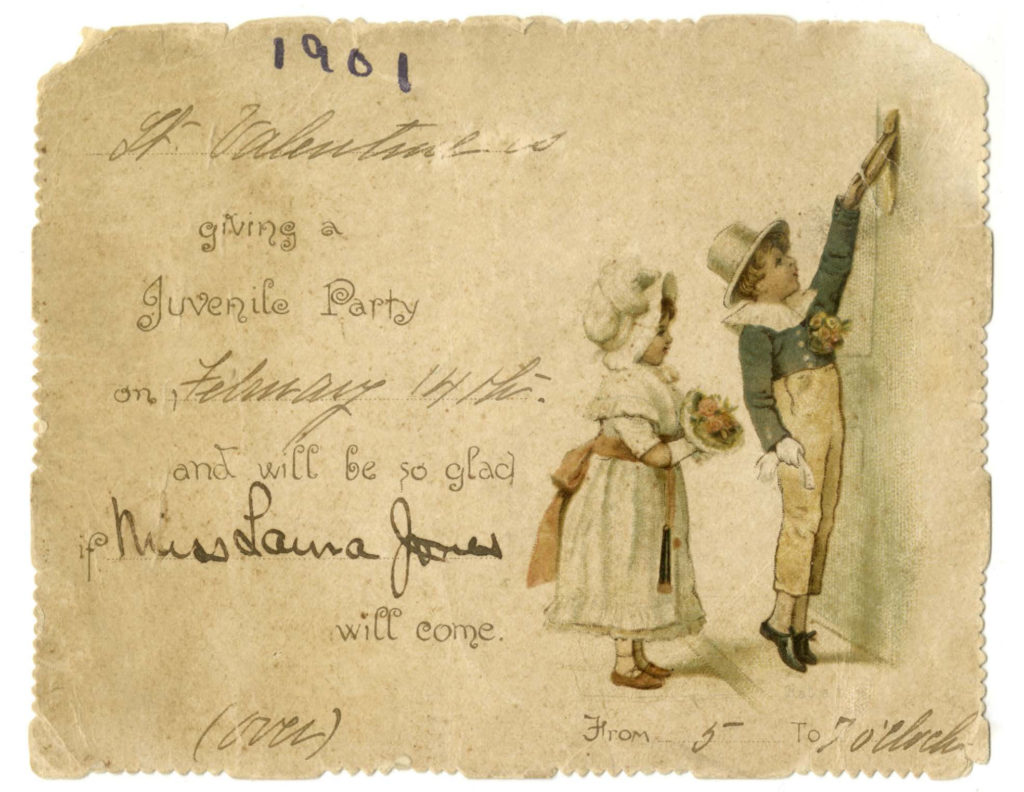 1901
St Valentine is
giving a
Juvenile Party
on February 14th.
and will be so glad
if Miss Laura Jones
will come.
(over)
From 5 To 7 o'clock